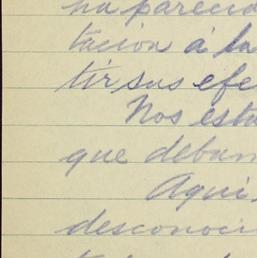 ha parecid
tacion á la
tir sus efe
Nos esta
que deban
Aqui
desconoci